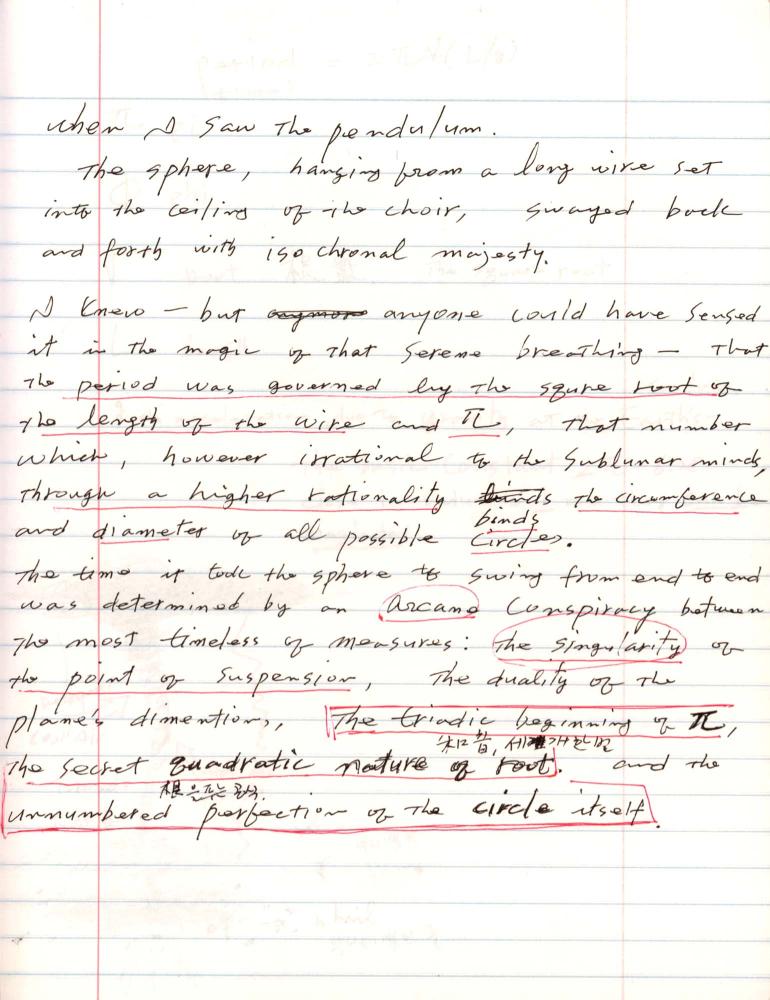 when I saw the pendulum.
The sphere, hanging from a long wire set
into the ceiling of the choir, swayed back
and forth with isochronal majesty.
I knew – but anyone could have sensed
it in the magic of that serene breathing – that
the period was governed by the squre root of
the length of the wire and π, that number
which, however irrational to the sublunar minds,
through a higher rationality binds the circumference
and diameter of all possible circles.
The time it took the sphere to swing from end to end
was determined by an arcane conspiracy between
the most timeless of measures: the singularity of
the point of suspension, the duality of the
plane's dimentions, the triadic beginning of π,
the secret quadratic nature of root. and the
unnumbered perfection of the circle itself.